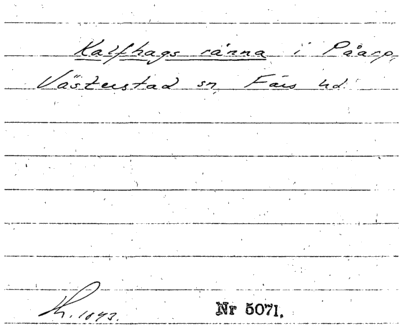 Kalfhags ränna i Påarp,
Västerstad sn, Färs hd.
Nr 5071.